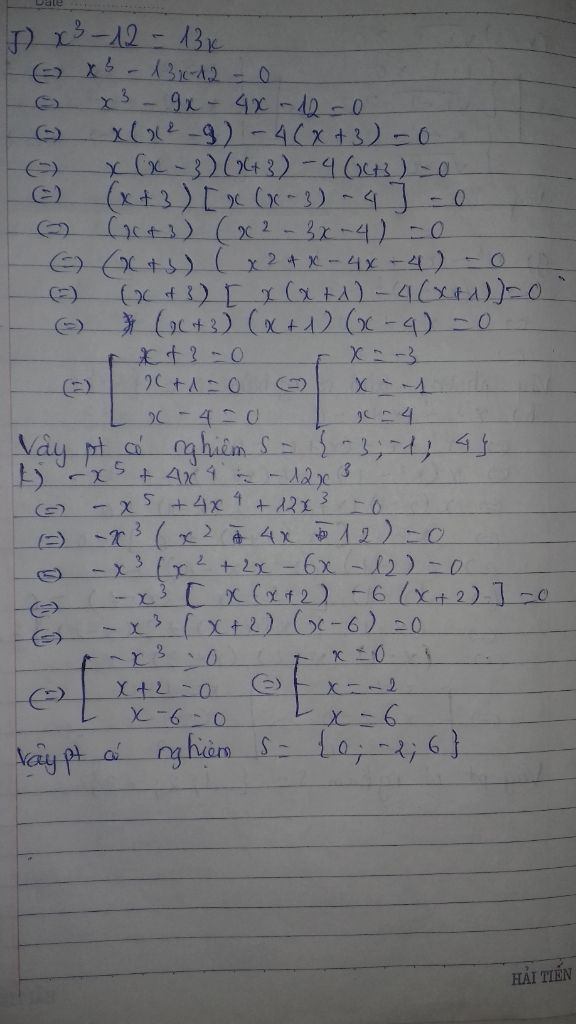 Date
J) x³ - 12 = 13x
(=) x³ - 13x-12 = 0
(=) x³ - 9x - 4x - 12 = 0
(=) x(x² - 9) - 4(x + 3) = 0
(=) x (x - 3)(x+3) - 4(x+3) = 0
(=) (x+3) [x(x-3) - 4] = 0
(=) (x+3) (x² - 3x - 4) = 0
(=) (x+3) (x² + x - 4x - 4) = 0
(=) (x+3) [x(x+1) - 4(x+1)] = 0
(=) (x+3) (x+1) (x-4) = 0
(=) [ x+3 = 0 (=) [ x = -3
x+1 = 0 x = -1
x - 4 = 0 x = 4
Vậy pt có nghiệm S = {-3; -1; 4}
k) -x⁵ + 4x⁴ = -12x³
(=) -x⁵ + 4x⁴ + 12x³ = 0
(=) -x³ (x² - 4x - 12) = 0
(=) -x³ (x² + 2x - 6x - 12) = 0
(=) -x³ [x(x+2) - 6(x+2)] = 0
(=) -x³ (x+2) (x-6) = 0
(=) [ -x³ = 0 (=) [ x = 0
x+2 = 0 x = -2
x-6 = 0 x = 6
Vậy pt có nghiệm S = {0; -2; 6}
HẢI TIẾN